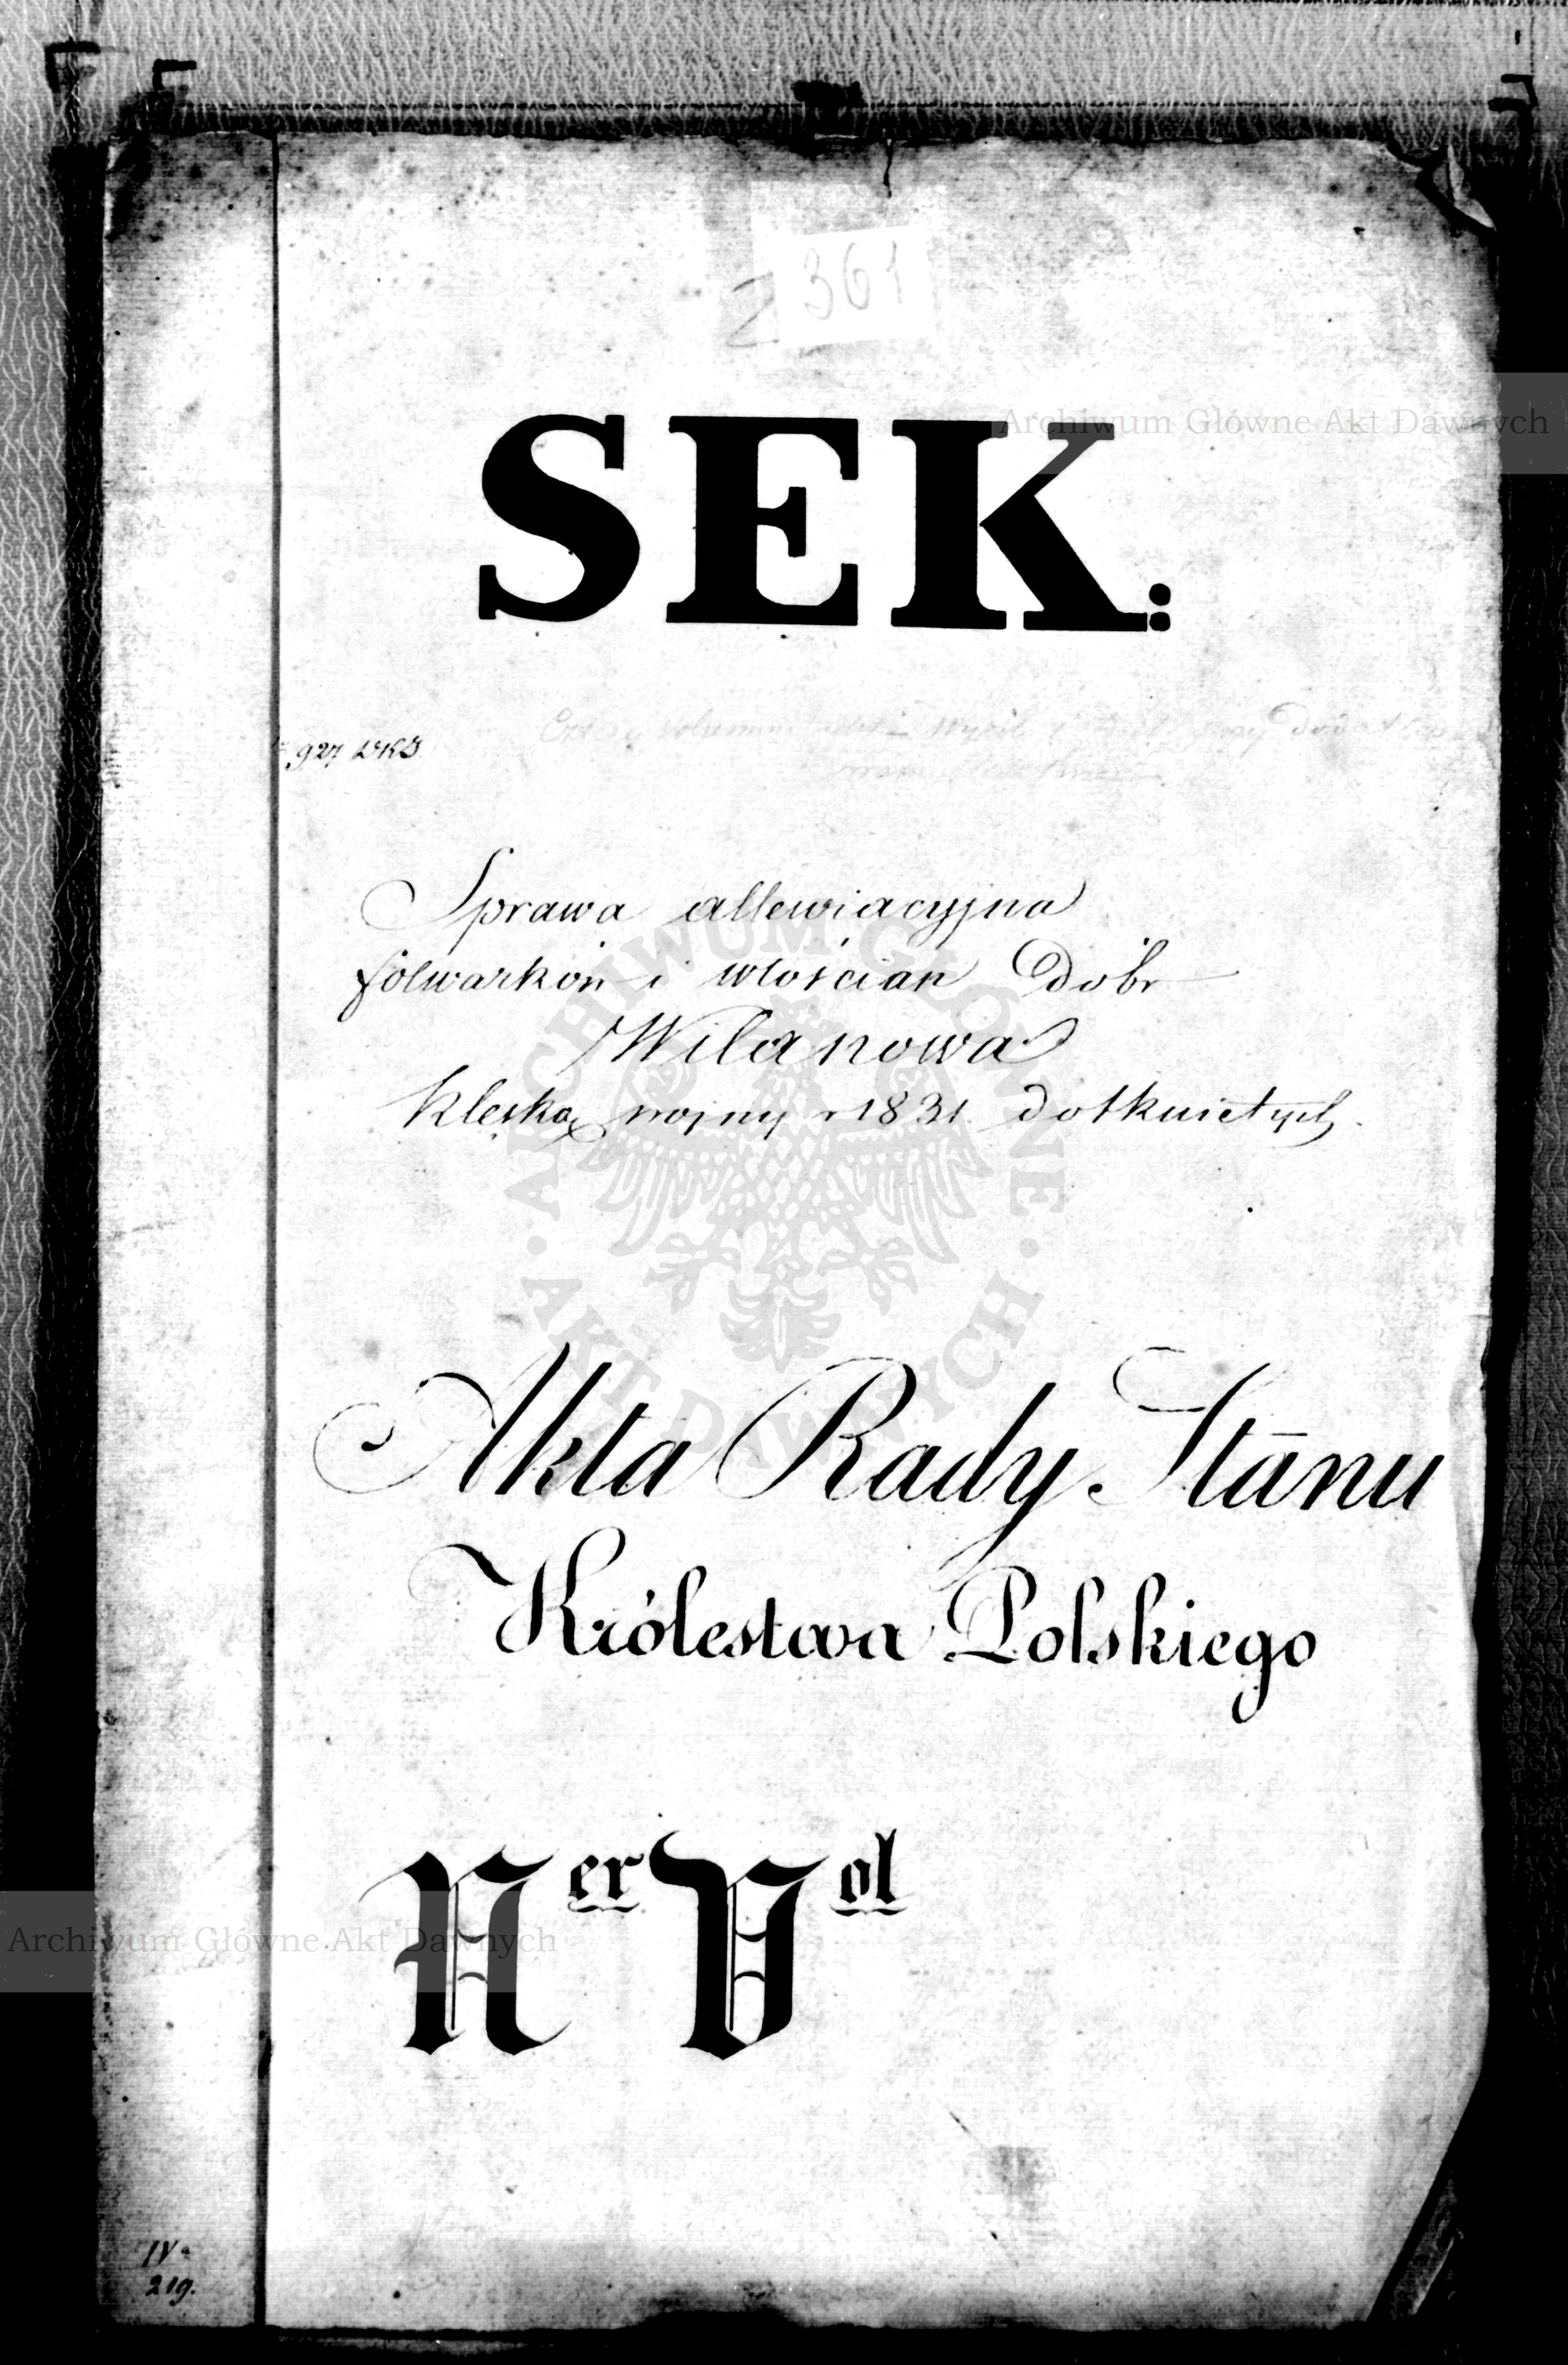 2 361
SEK:
Archiwum Główne Akt Dawnych
927
Sprawa allewiacyjna
folwarków i włościan Dóbr
Wilanowa
klęską wojny r 1831 dotkniętych.
ARCHIWUM GŁÓWNE AKT DAWNYCH
Akta Rady Stanu
Królestwa Polskiego
Ner Vol
Archiwum Główne Akt Dawnych
IVa
219.